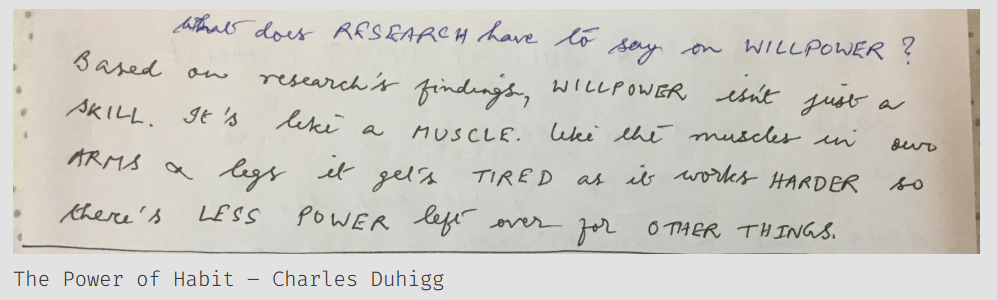 What does RESEARCH have to say on WILLPOWER ?
Based on research's findings, WILLPOWER isn't just a
SKILL. It's like a MUSCLE. like the muscles in our
ARMS & legs it get's TIRED as it works HARDER so
there's LESS POWER left over for OTHER THINGS.
The Power of Habit – Charles Duhigg